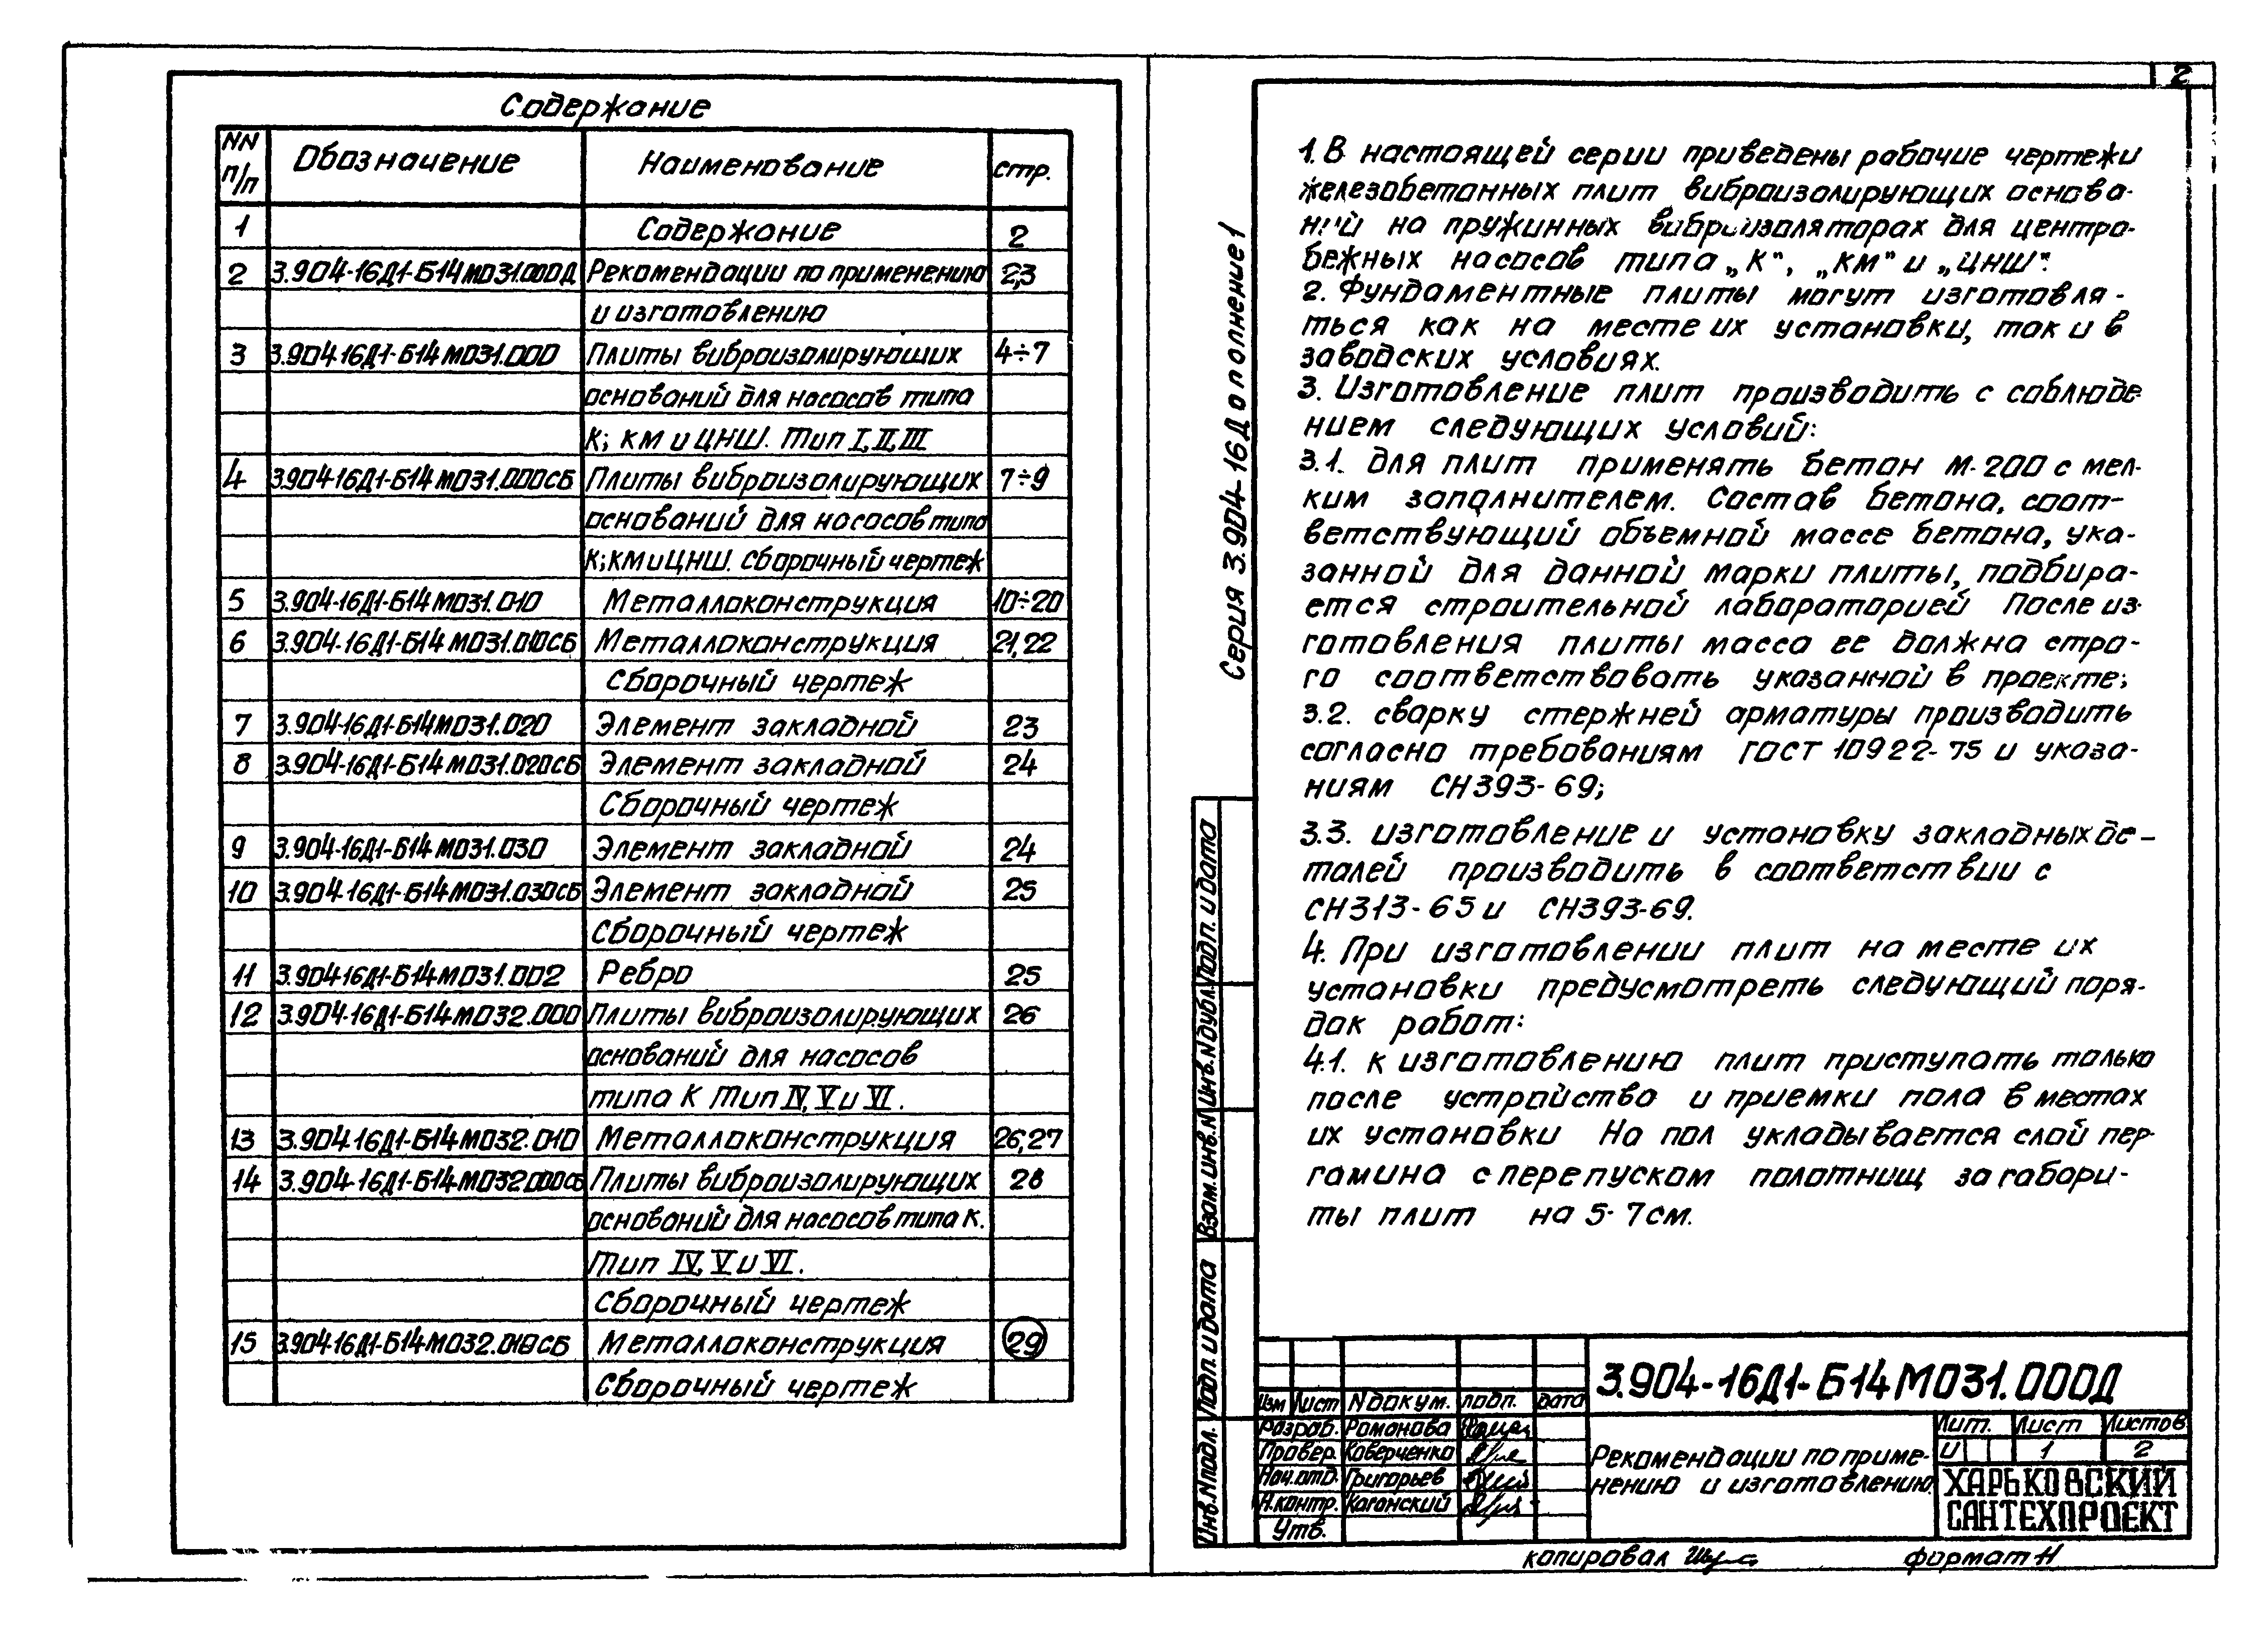 2
Содержание
NN п/п Обозначение Наименование стр.
1 Содержание 2
2 3.904-16Д1-Б14М031.000Д Рекомендации по применению 2,3
и изготовлению
3 3.904-16Д1-Б14М031.000 Плиты виброизолирующих 4÷7
оснований для насосов типа
К; КМ и ЦНШ. Тип I, II, III
4 3.904-16Д1-Б14М031.000СБ Плиты виброизолирующих 7÷9
оснований для насосов типа
К; КМ и ЦНШ. Сборочный чертеж
5 3.904-16Д1-Б14М031.010 Металлоконструкция 10÷20
6 3.904-16Д1-Б14М031.010СБ Металлоконструкция 21,22
Сборочный чертеж
7 3.904-16Д1-Б14М031.020 Элемент закладной 23
8 3.904-16Д1-Б14М031.020СБ Элемент закладной 24
Сборочный чертеж
9 3.904-16Д1-Б14М031.030 Элемент закладной 24
10 3.904-16Д1-Б14М031.030СБ Элемент закладной 25
Сборочный чертеж
11 3.904-16Д1-Б14М031.002 Ребро 25
12 3.904-16Д1-Б14М032.000 Плиты виброизолирующих 26
оснований для насосов
типа К Тип IV, V и VI.
13 3.904-16Д1-Б14М032.010 Металлоконструкция 26,27
14 3.904-16Д1-Б14М032.000СБ Плиты виброизолирующих 28
оснований для насосов типа К.
Тип IV, V и VI.
Сборочный чертеж
15 3.904-16Д1-Б14М032.010СБ Металлоконструкция 29
Сборочный чертеж
Серия 3.904-16 Дополнение 1
1. В настоящей серии приведены рабочие чертежи
железобетонных плит виброизолирующих основа-
ний на пружинных виброизоляторах для центро-
бежных насосов типа „К", „КМ" и „ЦНШ".
2. Фундаментные плиты могут изготовля-
ться как на месте их установки, так и в
заводских условиях.
3. Изготовление плит производить с соблюде
нием следующих условий:
3.1. для плит применять бетон М-200 с мел-
ким заполнителем. Состав бетона, соот-
ветствующий объемной массе бетона, ука-
занной для данной марки плиты, подбира-
ется строительной лабораторией После из-
готовления плиты масса ее должна стро-
го соответствовать указанной в проекте;
3.2. сварку стержней арматуры производить
согласно требованиям ГОСТ 10922-75 и указа-
ниям СН393-69;
3.3. изготовление и установку закладных де-
талей производить в соответствии с
СН313-65 и СН393-69.
4. При изготовлении плит на месте их
установки предусмотреть следующий поря-
док работ:
4.1. к изготовлению плит приступать только
после устройства и приемки пола в местах
их установки На пол укладывается слой пер-
гамина с перепуском полотнищ за габари-
ты плит на 5-7см.
Инв.N подл. Подп. и дата Взам.инв.N Инв.N дубл. Подп. и дата
3.904-16Д1-Б14М031.000Д
Изм Лист N докум. подп. дата
Разраб. Романова
Провер. Коверченко
Нач.отд. Григорьев
Н.контр. Каганский
Утв.
Рекомендации по приме-
нению и изготовлению.
Лит. Лист Листов
И 1 2
ХАРЬКОВСКИЙ
САНТЕХПРОЕКТ
копировал
формат Н